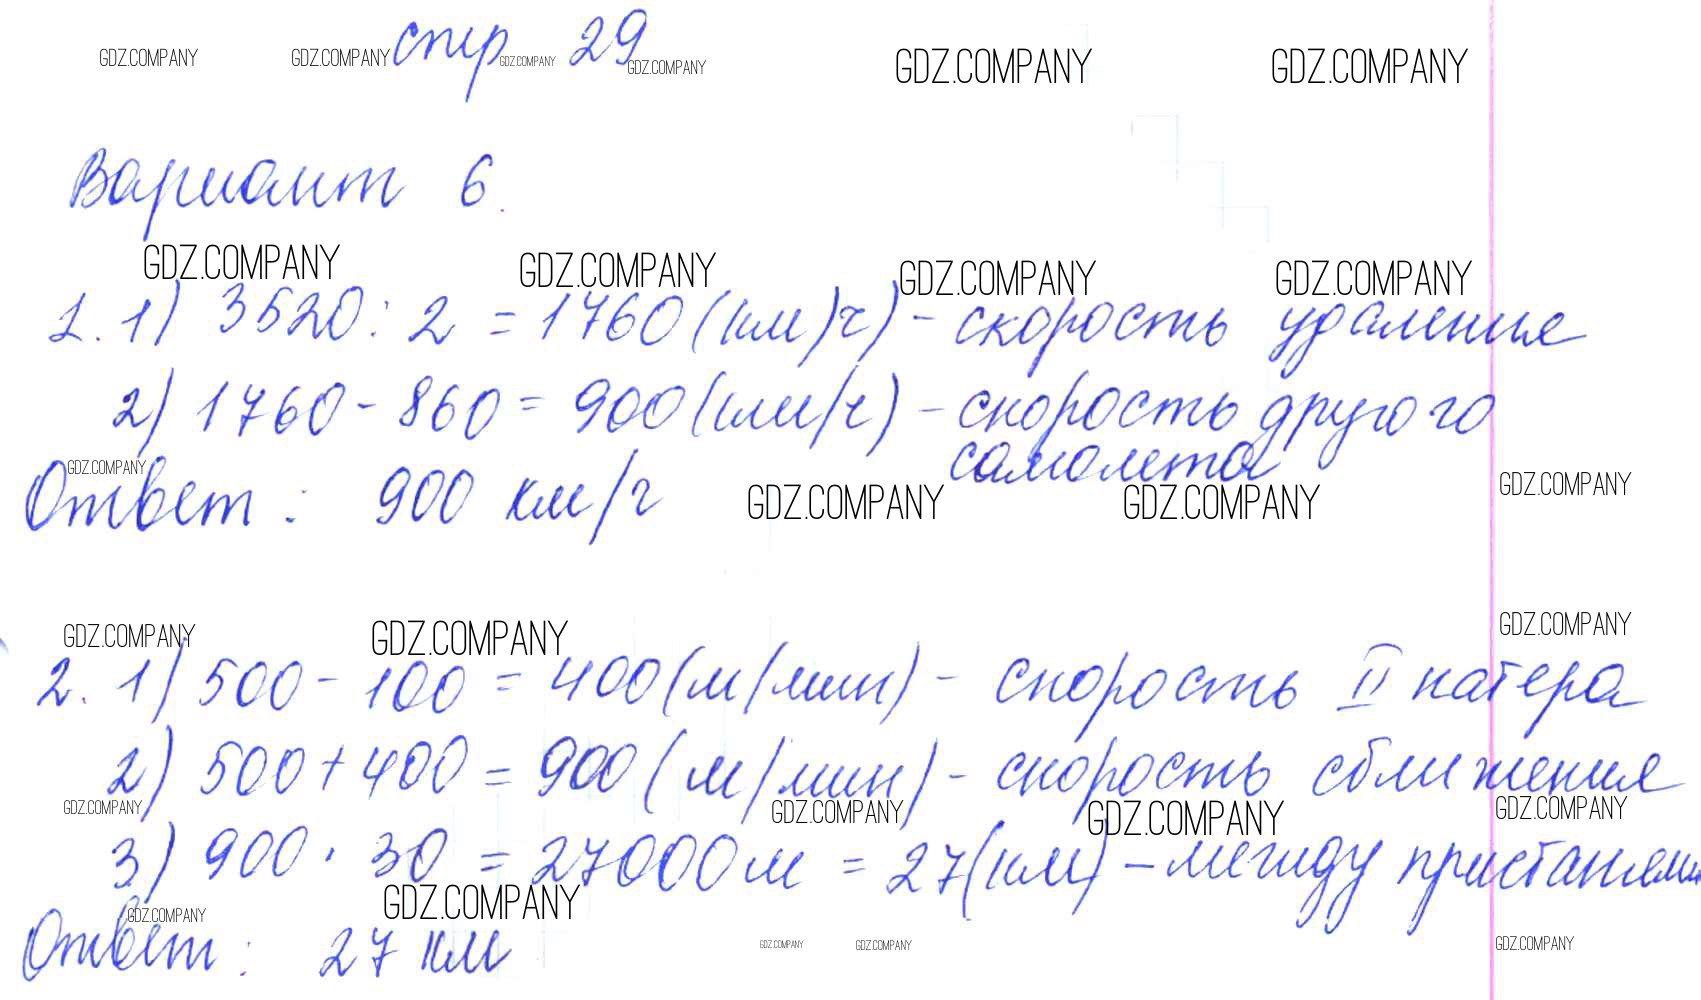 GDZ.COMPANY GDZ.COMPANY стр GDZ.COMPANY 29 GDZ.COMPANY GDZ.COMPANY GDZ.COMPANY
Вариант 6.
GDZ.COMPANY GDZ.COMPANY GDZ.COMPANY GDZ.COMPANY
1. 1) 3520 : 2 = 1760 (км/ч) - скорость удаления
2) 1760 - 860 = 900 (км/ч) - скорость другого
самолета
GDZ.COMPANY
Ответ : 900 км/ч GDZ.COMPANY GDZ.COMPANY GDZ.COMPANY
GDZ.COMPANY GDZ.COMPANY GDZ.COMPANY
2. 1) 500 - 100 = 400 (м/мин) - скорость II катера
2) 500 + 400 = 900 (м/мин) - скорость сближения
GDZ.COMPANY GDZ.COMPANY GDZ.COMPANY GDZ.COMPANY
3) 900 · 30 = 27000 м = 27 (км) - между пристанями
GDZ.COMPANY GDZ.COMPANY
Ответ : 27 км GDZ.COMPANY GDZ.COMPANY GDZ.COMPANY